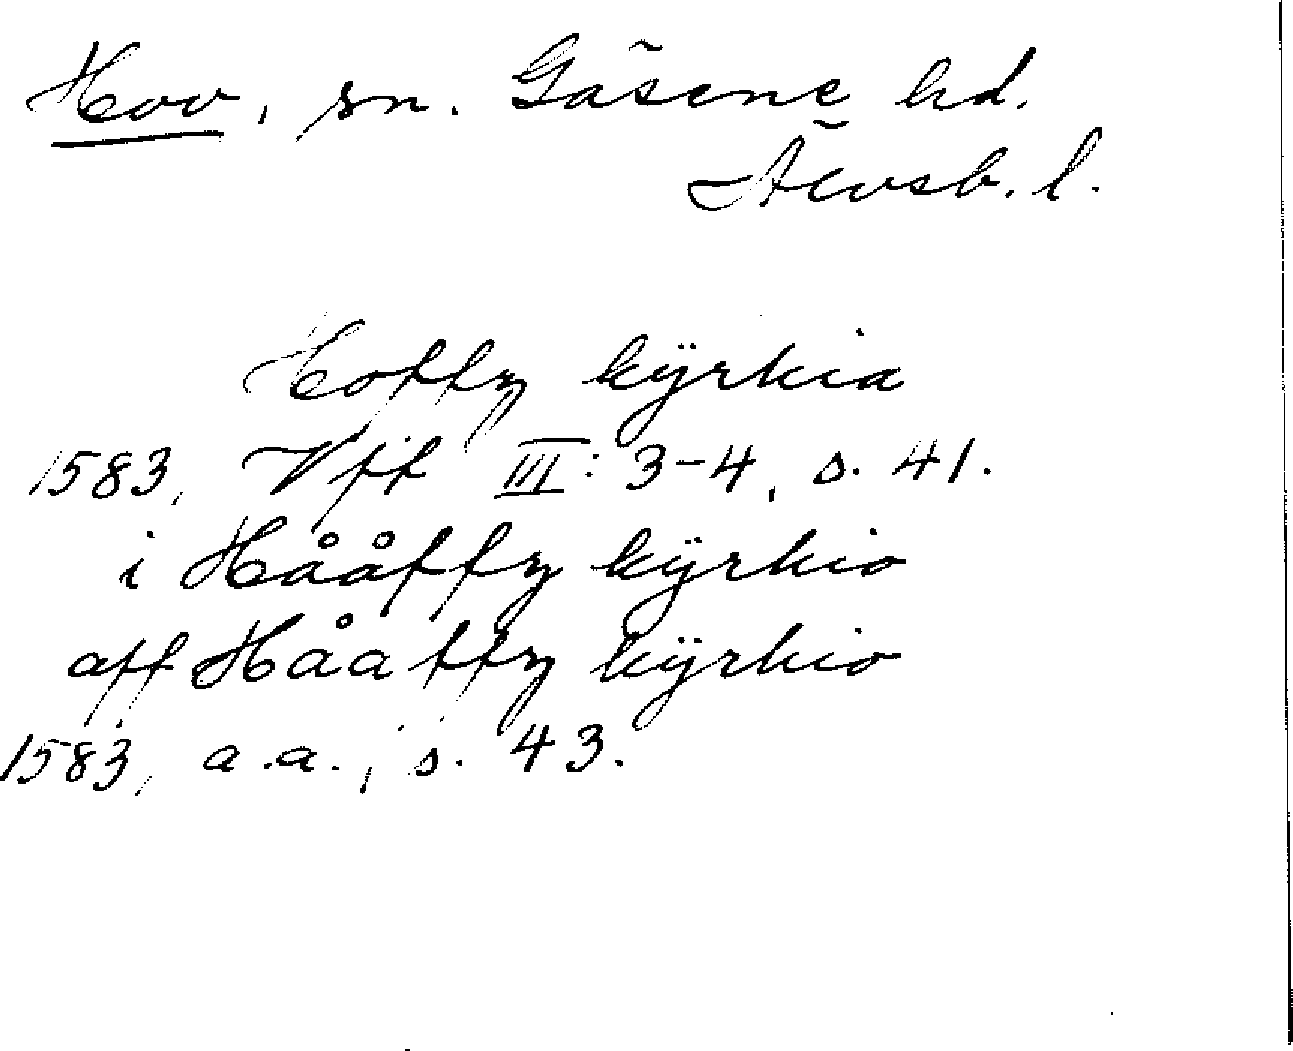 Hov, sn. Gäsene hd.
Älvsb. l.
Hoffz kÿrkia
1583, Vff III: 3-4, s. 41.
i Hååffz kÿrkio
aff Hååffz kÿrkio
1583, a.a., s. 43.